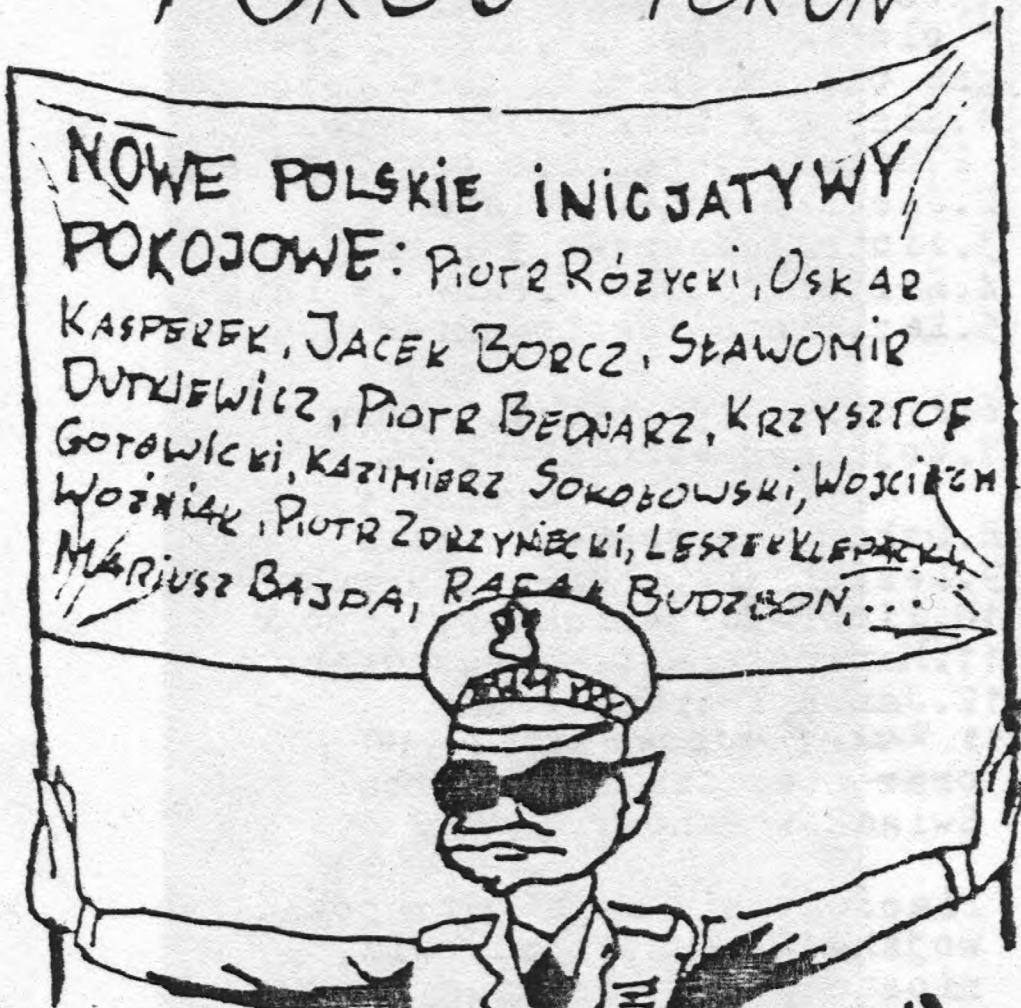 TORUŃ
NOWE POLSKIE iNiCJATYWY
POKOJOWE: PiOTR RÓŻYCKi, OSKAR
KASPEREK, JACEK BORCZ, SŁAWOMiR
DUTKiEWiCZ, PiOTR BEDNARZ, KRZYSZTOF
GOTOWiCKi, KAZiMiERZ SOKOŁOWSKi, WOJCiECH
WOŹNiAK, PiOTR ZDRZYNiECKi, LESZEK
MARiUSZ BAJDA, RAFAŁ BUDZBON, ...